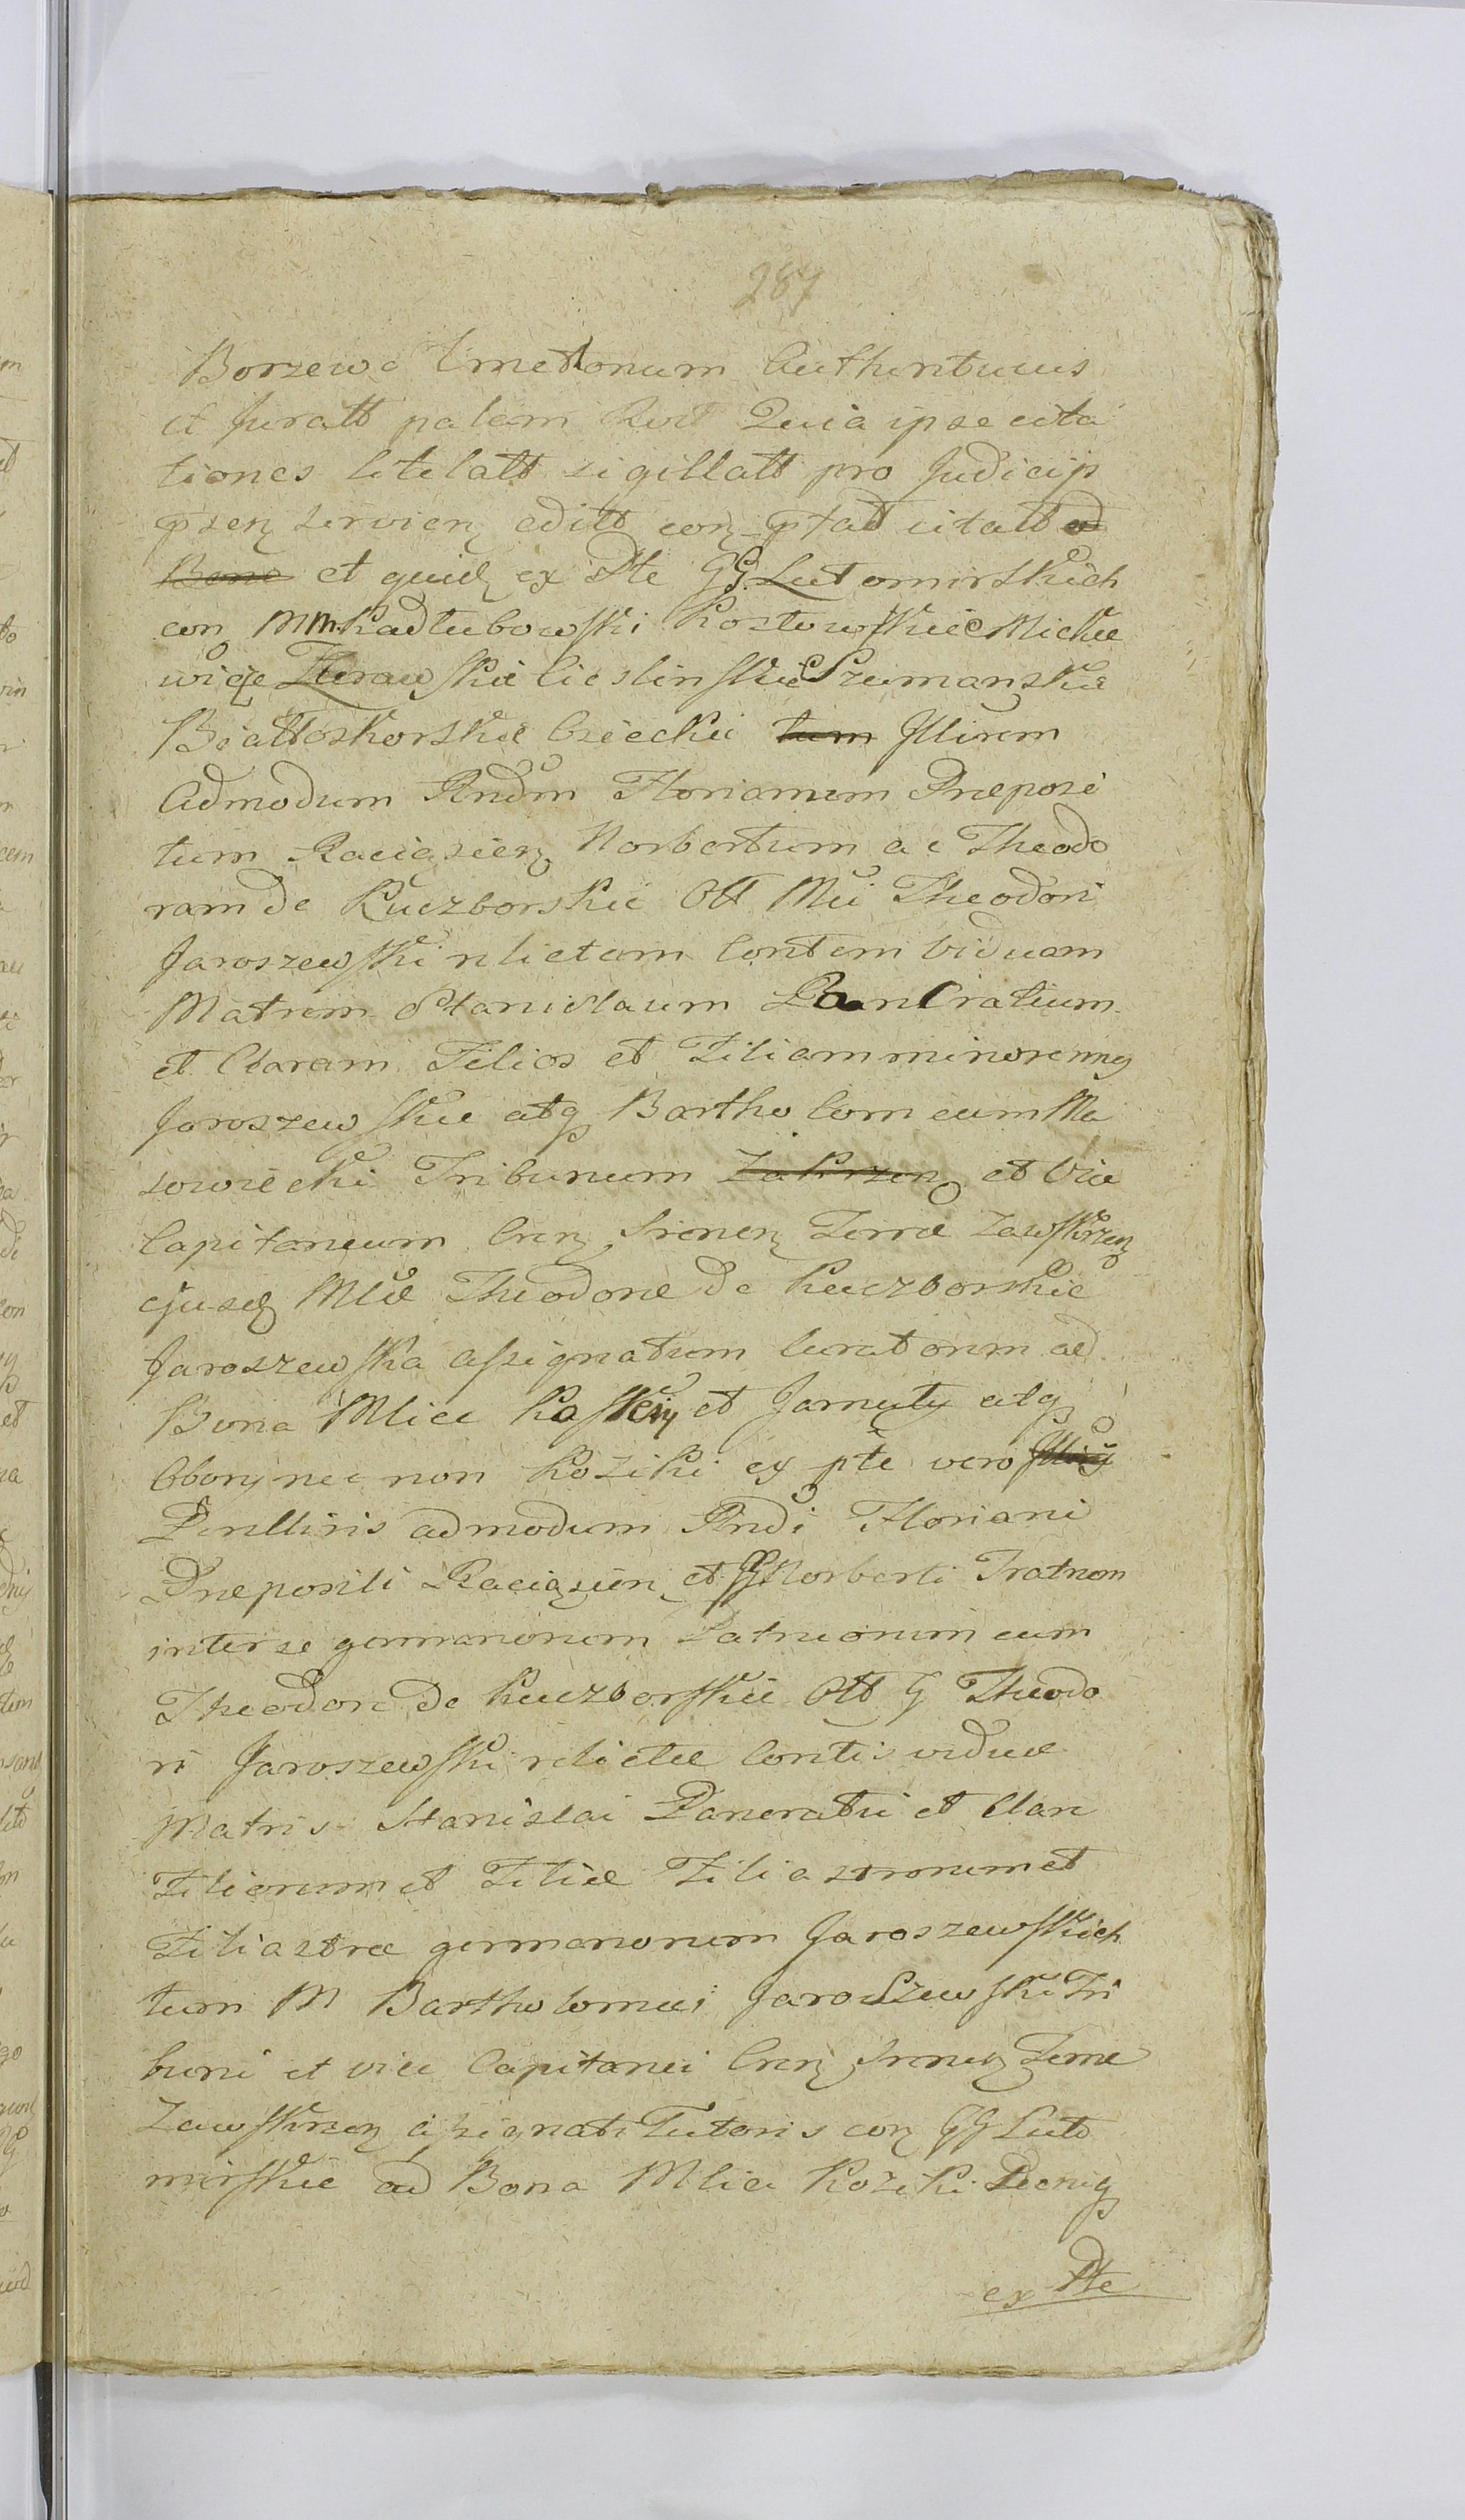 287
Borzewo Cmethonum Authenticus
et Juratt palam Quia ipse cita
tiones litelatt sigillatt pro Judicijs
psenz servienz editt conz ptatt citatt ad
Bona et quidz ex Pte GG Lutomirskich
con MM Kadlubowski Kostowskie Mickie
wicze Zurawskie Cieslinskie Szumanskie
Białłoskorskie Czieckie tum Jllirem
Admodum Rndm Florianum Praeposi
tum Raciązienz Norbertum ac Theodo
ram de Kuczborskie Ott Mci Theodori
Jaroszewski relictam Contem Viduam
Matrem Stanislaum PanCratium
et Claram Filios et Filiam minorenng
Jaroszewskie atqz Bartholomeum Ma
sowiecki Tribunum Zakrzenz et Vice
Capitaneum Crenz Srenenz Terrae Zawskrzenz
ejusdz Mllae Theodorae de Kuczborskie
Jaroszewska assignatum Curatorem ad
Bona Mlica Kosskiy et Jarnuty atqz
Obory nec non Koziki ex pte vero Jllirij
Perilliris admodum Rndi Floriani
Praepositi Raciązienz et GG Norberti Fratrum
inter se germanorum Patruorum cum
Theodora de Kuczborskie Ott G Theodo
ri Jaroszewski relictae Contis viduae
Matris Stanislai Pancratii et Clarae
Filiorum et Filiae Filiastrorum et
Filiastrae germanorum Jaroszewskich
tum M Bartholomei Jaroszewski Tri
buni et vice Capitanei Crenz Srenenz Terrae
Zawskrzenz assignati Tutoris conz GG Luto
mirskie ad Bona Mlica Koziki
ex Pte